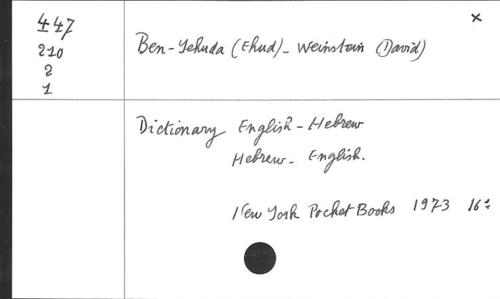 447
210
2
1
x
Ben-Yehuda (Ehud)_ Weinstein (David)
Dictionary English-Hebrew
Hebrew- English.
New York Pocket Books 1973 16º